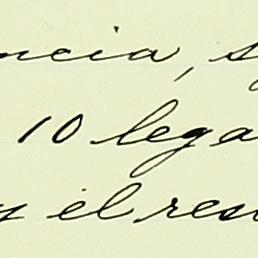 ncia, s
10 lega
y él resu